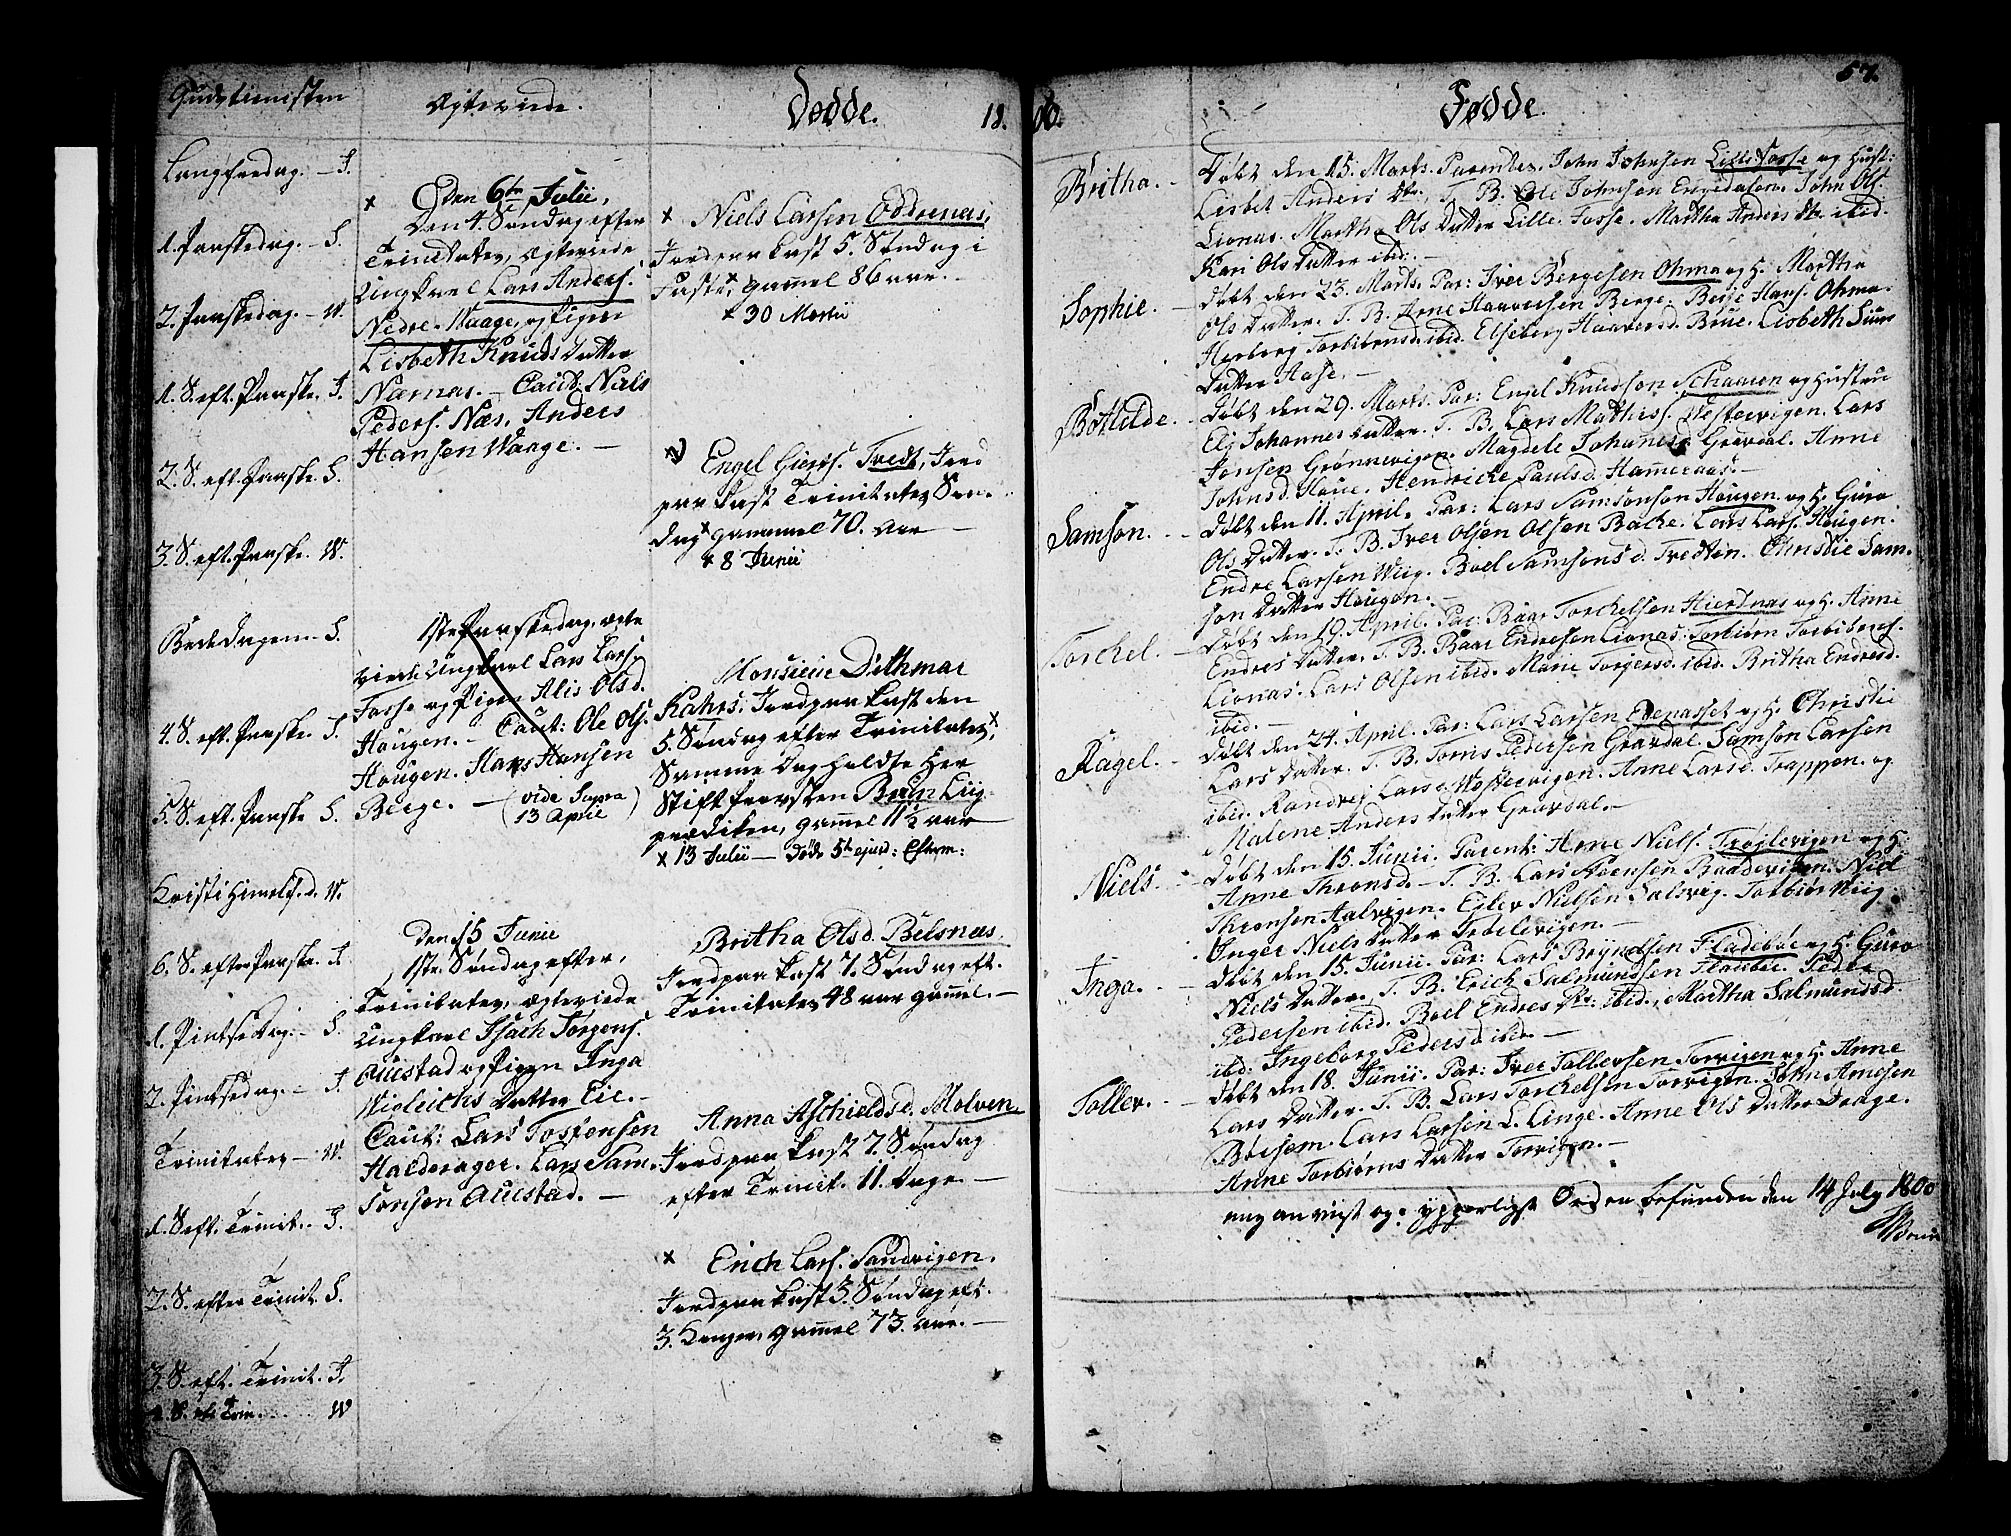 Gudstienisten
Langfredag. - J.
1. Paaskedag. - S.
2. Paaskedag. - W.
1. S. eft. Paaske. J.
2. S. eft. Paaske. S.
3. S. eft. Paaske. W.
Bededagen. - S.
4. S. eft. Paaske. J.
5. S. eft. Paaske S.
Kristi Himelf. d. W.
6. S. efter Paaske. J.
1. Pintsedag. - S.
2. Pintsedag. - J.
Trinitates - W.
1. S. eft. Trinit. J.
2. S. efter Trinit. S.
3. S. eft. Trinit. J.
4. S. eft Trin. W
Ægteviede.
x Den 6te Julii,
Den 4. Søndag efter
Trinitates, Ægteviede
Ungkarl Lars Anders.
Nedre-Waage, og Pigen
Lisbeth Knuds Datter
Nærnæs. - Caut: Niels
Peders. Næs, Anders
Hansen Waage. -
1ste Paaskedag, ægte
viede Ungkarl Lars Lars.
Fosse og Pigen Alis Olsd.
Hougen. - Caut: Ole Ols.
Hougen. Hans Hansen
Berge. - (vide Supra
13 Aprile)
Den 15 Junii
1ste Søndag efter
Trinitates, ægteviede
Ungkarl Isach Jørgens.
Austad og Pigen Inga
Wigleichs Datter Eie. -
Caut: Lars Tostensen
Halderager. Lars Sam-
sonsen Austad. -
Dødde.
18
x Niels Larsen Oddrenæs,
Jordpaakast 5. Søndag i
Faste, x gamel 86 aar. -
x 30 Martii
Engel Giers. Tredt, Jord
paakast Trinitates Søn-
dag x gammel 70. aar -
x 8 Junii
Monsieur Dithmar
Kahrs. Jordpaakast den
5. Søndag efter Trinitates, x
Samme Dag holdte Her
Stiftprovsten Brun Liig-
prædiken, gamel 11½ aar
x 13 Julii - døde 5te ejusd:
Britha Olsd. Belsnæs.
Jordpaakast 7. Søndag eft.
Trinitates 48 aar gamel. -
Anna Aschieldsd. Molven.
Jordpaakast 7. Søndag
efter Trinit. 11. Dage. -
x Erich Lars. Sandvigen.
Jordpaakast 3. Søndag eft.
3. Konger, gamel 73. aar. -
00.
Fødde.
57.
Britha. - Døbt den 15. Marts. Parentes. John Johnsen Lille Fosse og Hust:
Lisbet Anders Dtr., T. B. Ole Johnsen Engedalen. John Ols.
Lionæs. Martha Ols Datter Lille Fosse. Martha Anders Dtr ibid.
Kari Ols Datter ibid. -
Sophie. - Døbt den 23. Marts. Par: Iver Bergesen Ohma og H. Martha
Ols Datter. T. B. Arne Haaversen Berge. Berge Hans. Ohma.
Herborg Torbiörnsd. ibid. Elseberg Haaversd. Brue. Lisbeth Siurs
Datter Aase. -
Bothilde. - Døbt den 29. Marts. Par: Engel Knudson Schaaren og Hustru
Eli Johannes Datter. T. B. Lars Mathis. Westervigen. Lars
Jonsen Grønnevigen. Magdele Johanesd Gravdal. Anne
Johnsd. Houe. Hendricke Paulsd. Hameraas. -
Samson. - Døbt den 11. April. Par: Lars Samsonsøn Hougen og H. Guro
Ols Datter. T. B. Iver Olsen Olsen Bache. Lars Lars. Hougen.
Endre Larsen Wiig. Boel Samsonsd. Tredten. Christie Sam-
son Datter Hougen. -
Torchel. - Døbt den 19. April. Par: Baar Torchelsen Hiertnæs og H. Anne
Endres Datter. T. B. Baar Endresen Lionæs. Torbiørn Torbiørns.
Lionæs. Lars Olsen ibid. Marie Torgersd. ibid. Britha Endresd.
ibid. -
Ragel. - Døbt den 24. April. Par: Lars Larsen Edenasset og H. Christie
Lars Datter. T. B. Tornis Pedersen Gravdal. Samson Larsen
ibid. Randvei Larsd. Westervigen. Anne Larsd. Trappen. og
Malene Anders Datter Gravdal. -
Niels. - Døbt den 15. Junii. Parent: Arne Niels. Trøilevigen og H.
Anne Thronsd. - T. B. Lars Steensen Baadsvigen. Niel
Thronsen Aalvigen. Eilev Nielsen Salsveg. Torbiør Wiig.
Inger Niels Datter Trøilevigen. -
Inga. - Døbt den 15. Junii. Par: Lars Bryndelsen Fladebøe og H. Guro
Niels Datter. T. B. Erich Salmundsen Fladebøe. Peder
Pedersen ibid. Boel Endres Dtr: ibid. Martha Salmundsd.
ibid. Ingeborg Pedersd. ibid. -
Tollev. - Døbt den 18. Junii. Par: Iver Tollevsen Torvigen og H. Anne
Lars Datter. T. B. Lars Torchelsen Torvigen. John Arnesen
Børsem. Lars Larsen L. Linge. Anne Ols Datter Drage.
Anne Torbiørns Datter Torvigen. -
mig anviist og i ypperligste Orden befunden den 14 July 1800
JNBrun